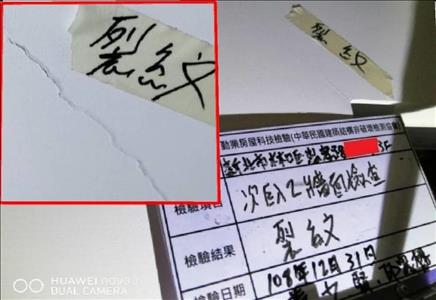 裂紋
裂紋
勤業房屋科技檢驗(中華民國建築結構非破壞檢測協會)
新北市林口區
3F
檢驗項目
次臥2牆面檢查
檢驗結果
裂紋
檢驗日期
108年12月31日
HUAWEI nova
DUAL CAMERA